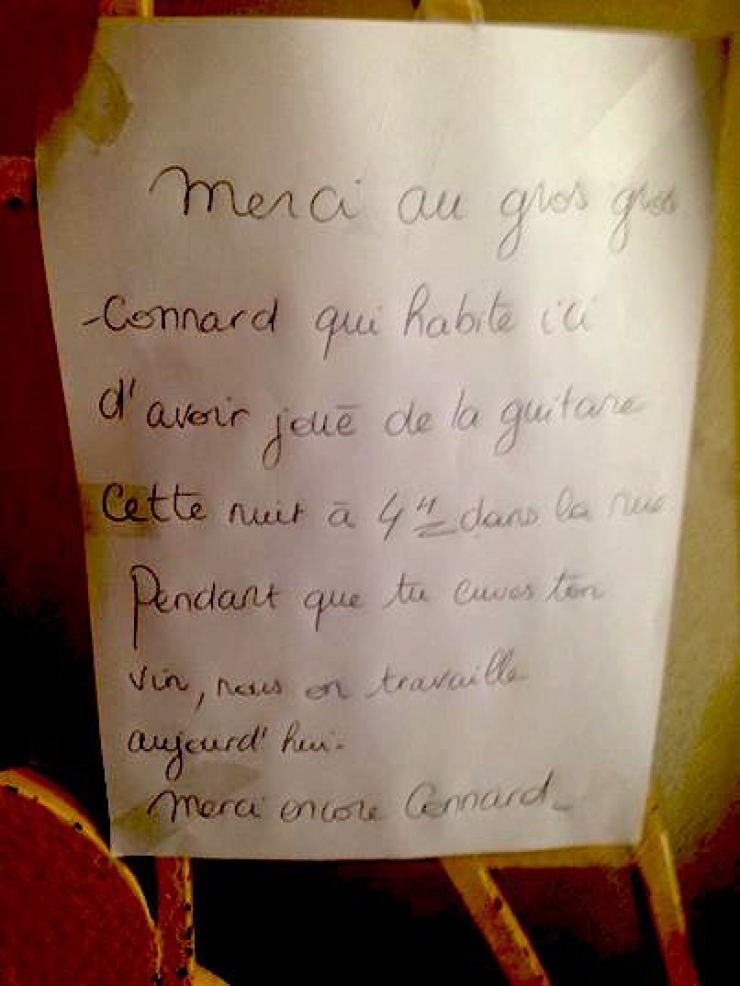 Merci au gros gros
-Connard qui habite ici
d'avoir joué de la guitare
Cette nuit à 4H dans la rue
Pendant que tu cuves ton
vin, nous on travaille
aujourd'hui.
Merci encore Connard_